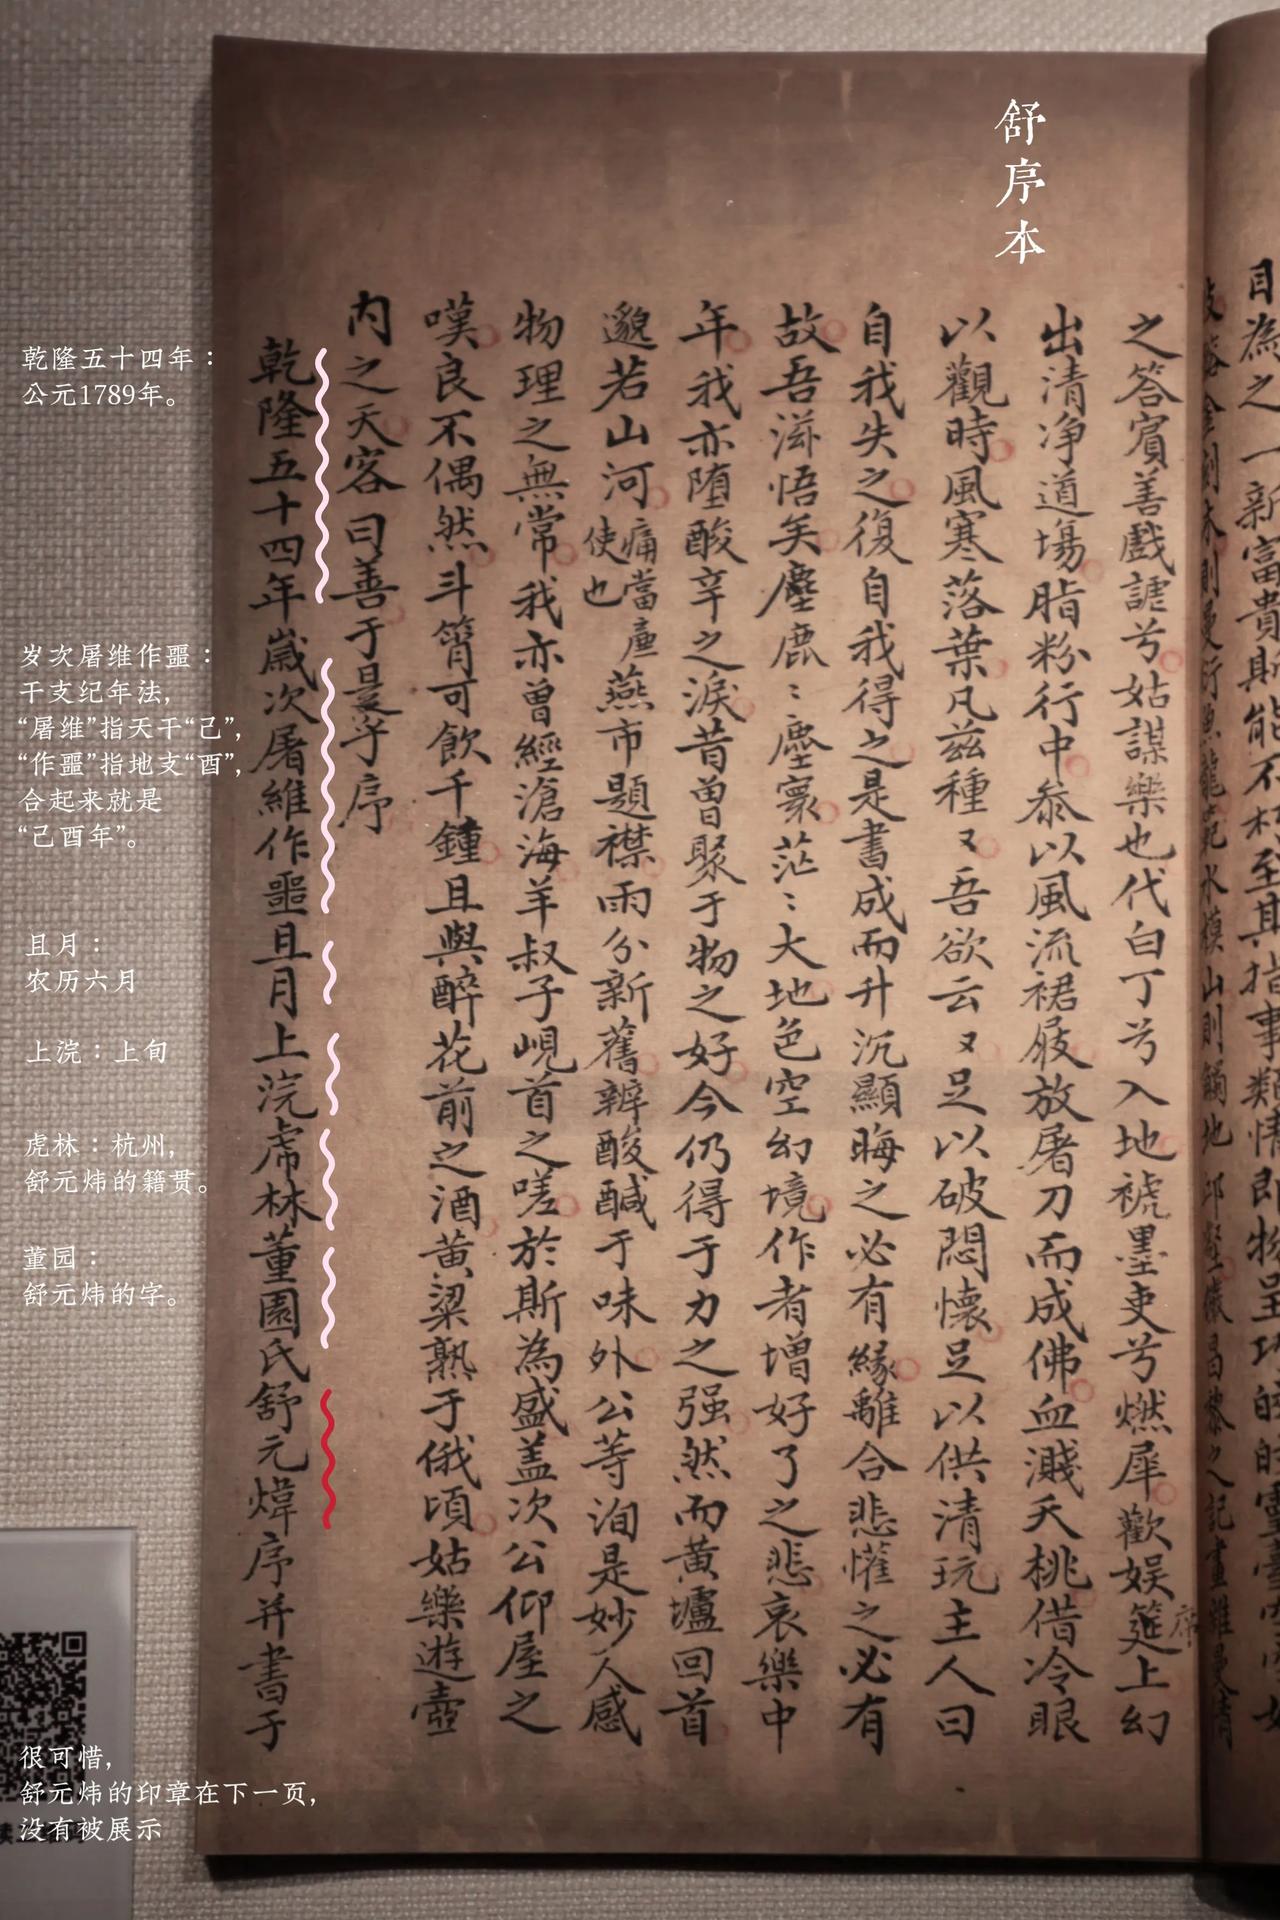 舒序本
目為之一新富貴斯能不朽至其指事類情即物呈巧的的靈臺
金刻木則曼衍魚龍範水模山則觸地邱壑儼昌黎之記畫雜曼倩
之答賓善戲謔兮姑謀樂也代白丁兮入地褫墨吏兮燃犀歡娱筵上幻
席
出清净道場脂粉行中叅以風流裙屐放屠刀而成佛血濺夭桃借冷眼
以觀時風寒落葉凡兹種〻吾欲云〻足以破悶懷足以供清玩主人曰
自我失之復自我得之是書成而升沉顯晦之必有緣離合悲懽之必有
故吾滋悟矣塵鹿〻塵寰茫〻大地色空幻境作者增好了之悲哀樂中
年我亦堕酸辛之淚昔曾聚于物之好今仍得于力之强然而黄壚回首
邈若山河痛當廛使也燕市題襟雨分新舊辨酸醎于味外公等洵是妙人感
物理之無常我亦曾經滄海羊叔子峴首之嗟於斯為盛盖次公仰屋之
嘆良不偶然斗筲可飲千鍾且與醉花前之酒黄粱熟于俄頃姑樂遊壺
内之天客曰善于是乎序
乾隆五十四年歲次屠維作噩且月上浣虎林董園氏舒元煒序并書于
乾隆五十四年：
公元1789年。
岁次屠维作噩：
干支纪年法，
“屠维”指天干“己”，
“作噩”指地支“酉”，
合起来就是
“己酉年”。
且月：
农历六月
上浣：上旬
虎林：杭州，
舒元炜的籍贯。
董园：
舒元炜的字。
很可惜，
舒元炜的印章在下一页，
没有被展示